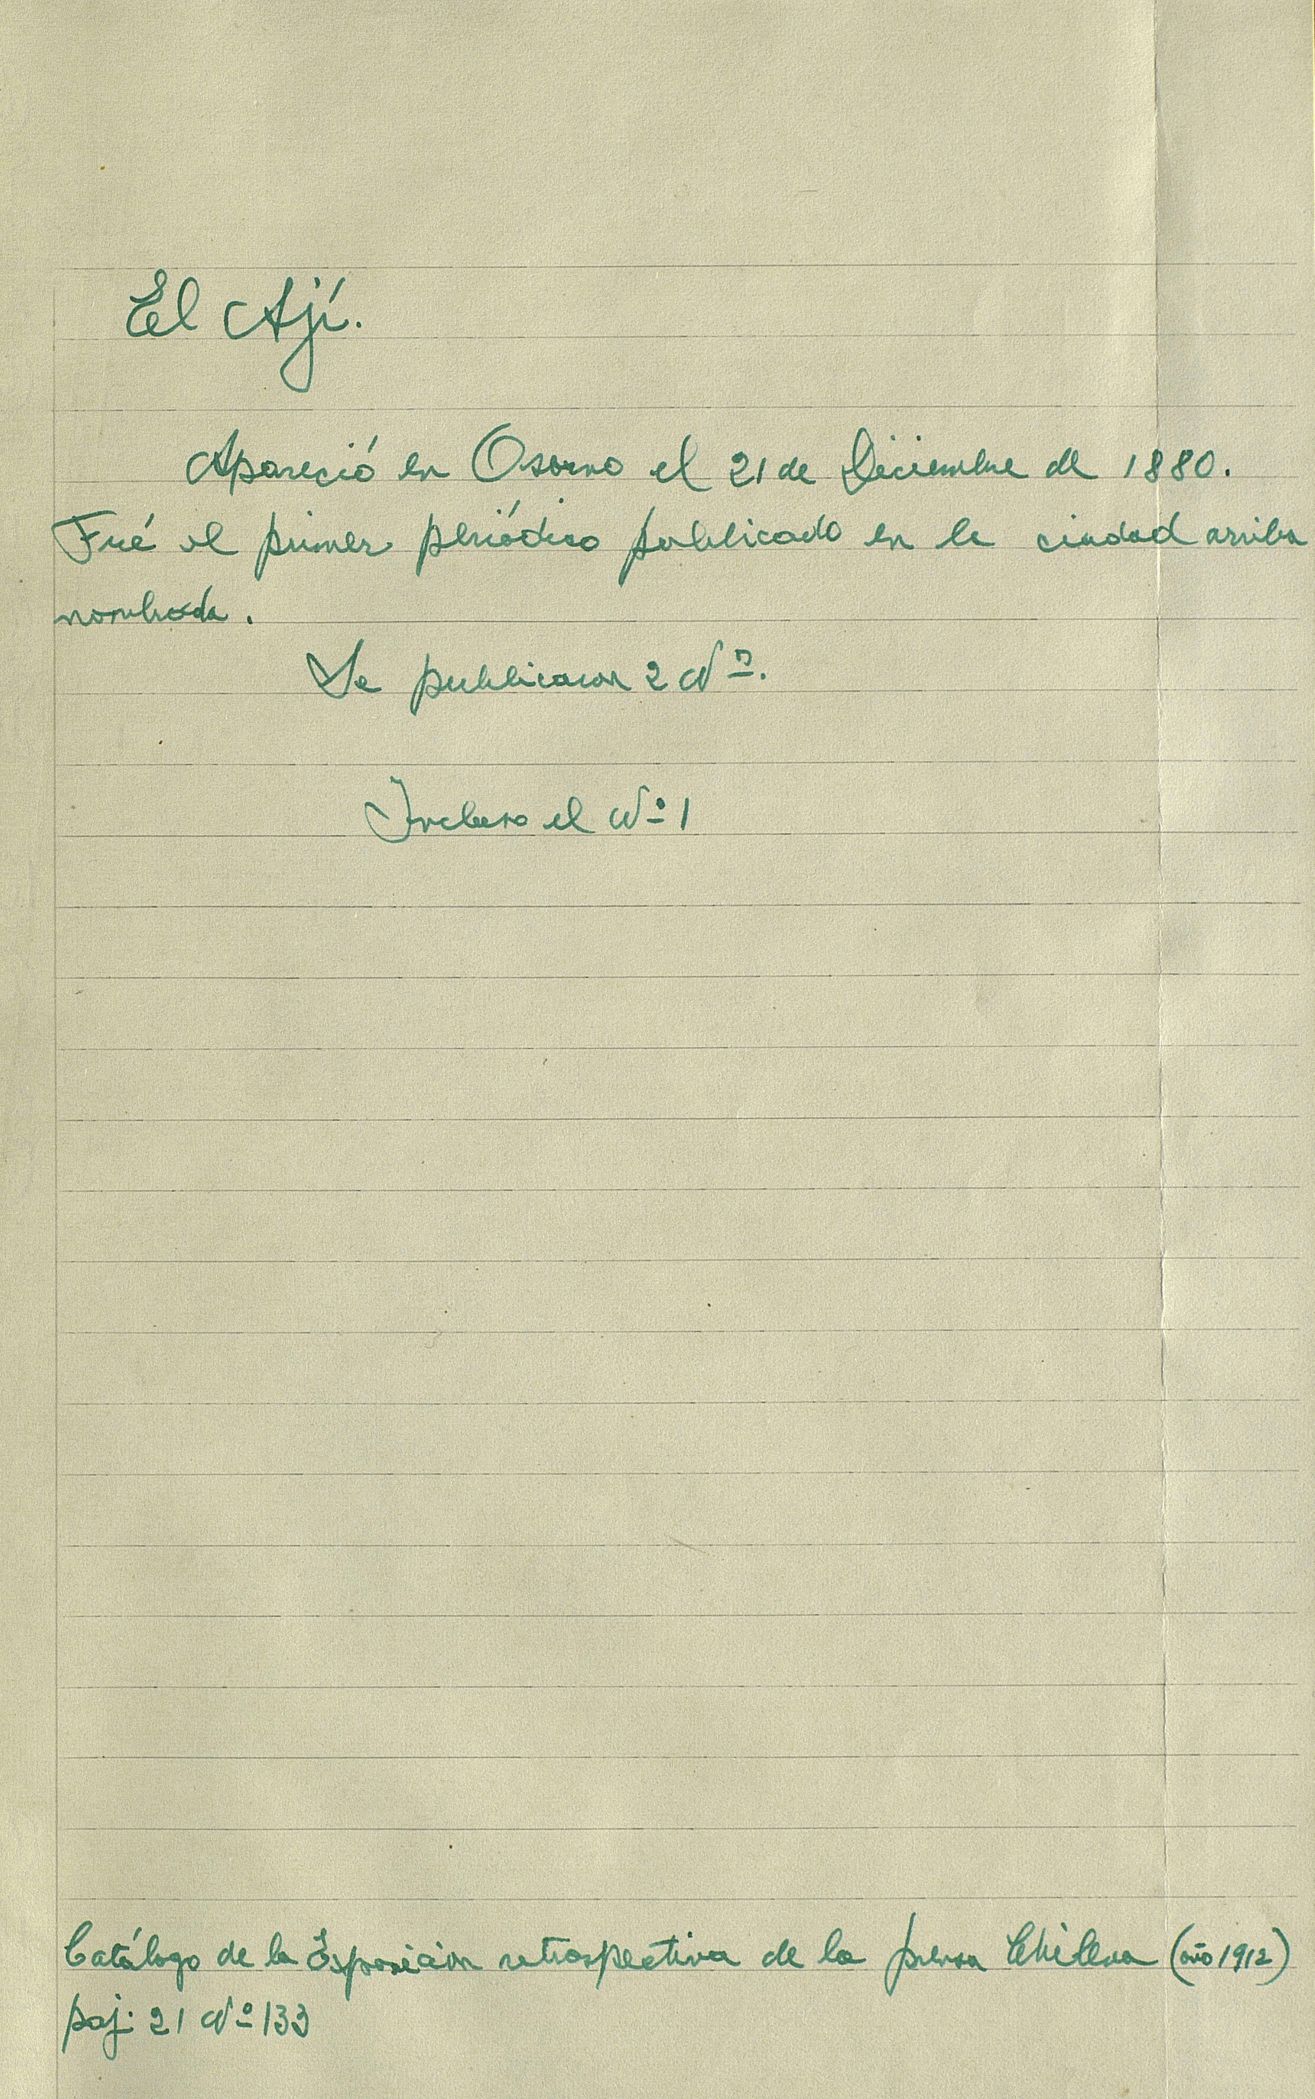 El Ají.
Apareció en Osorno el 21 de Diciembre de 1880.
Fué el primer periódico publicado en la ciudad arriba
nombrada.
Se publicaron 2 Nos.
Incluso el Nº 1
Catálogo de la Exposición retrospectiva de la prensa Chilena (año 1912)
paj: 21 Nº 133